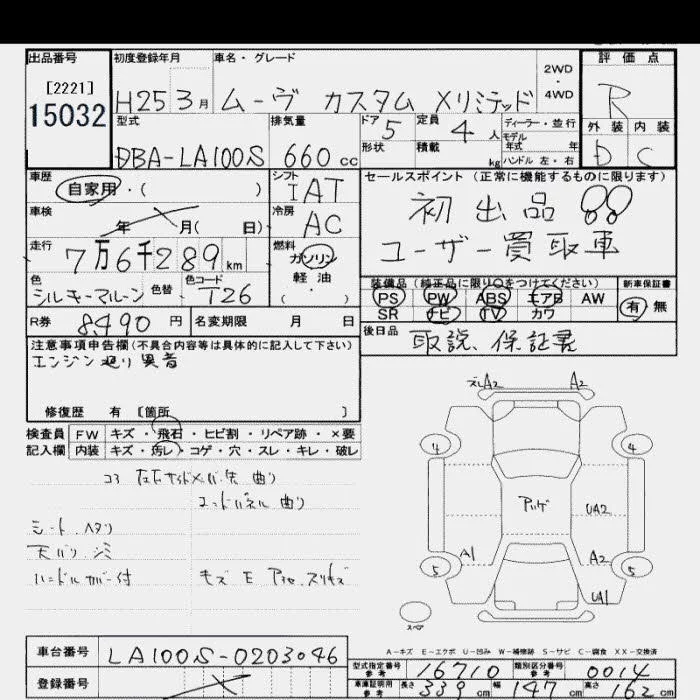 出品番号 初度登録年月 車名・グレード 2WD・4WD 評価点
[2221]
15032
H25 3月 ムーヴ カスタム Xリミテッド R
型式 排気量 ドア 5 定員 4人 ディーラー・並行 外装 内装
形状 積載 kg モデル年式 年 ハンドル 左・右
DBA-LA100S 660cc D C
車歴 自家用・( ) シフト IAT
車検 年 月( 日) 冷房 AC
走行 7万6千289km 燃料 ガソリン・軽油・( )
色 シルキーマルーン 色替 色コード T26
R券 8,490円 名変期限 月 日
セールスポイント(正常に機能するものに限ります)
初出品!!
ユーザー買取車
装備品(純正品に限り○をつけてください) 新車保証書
PS PW ABS エアB AW 有・無
SR ナビ TV カワ
後日品 取説、保証書
注意事項申告欄(不具合内容等は具体的に記入して下さい)
エンジン廻り異音
修復歴 有 [箇所 ]
検査員 FW キズ・飛石・ヒビ割・リペア跡・×要
記入欄 内装 キズ・汚レ・コゲ・穴・スレ・キレ・破レ
コア 左右サイドメンバー先 曲り
エンドパネル 曲り
シート ヘタリ
天バリ シミ
ハンドルカバー付
A2 A2
4 4
UA2
A1 A2
5 5
UA1
スペア
A-キズ E-エクボ U-凹み W-補修跡 S-サビ C-腐食 XX-交換済
車台番号 LA100S-0203046
登録番号
型式指定番号 参考 16710 類別区分番号 参考 0014
車庫証明用 参考 長さ 339cm 幅 147cm 高さ 162cm